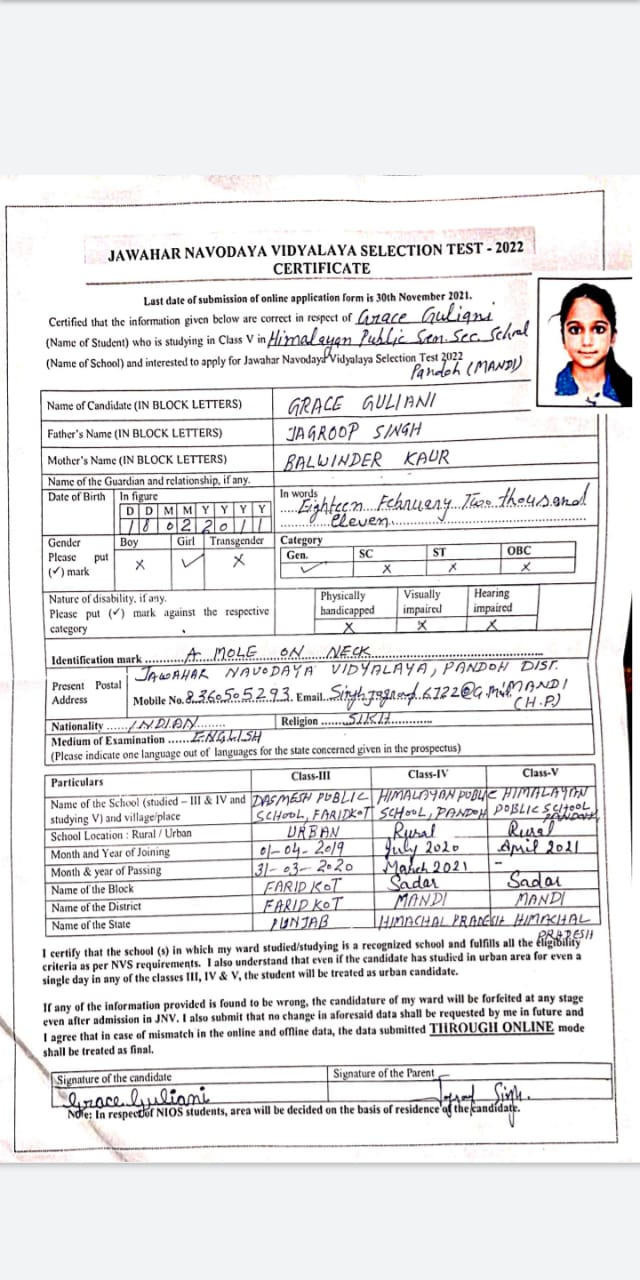 JAWAHAR NAVODAYA VIDYALAYA SELECTION TEST - 2022
CERTIFICATE
Last date of submission of online application form is 30th November 2021.
Certified that the information given below are correct in respect of Grace Guliani
(Name of Student) who is studying in Class V in Himalayan Public Sen. Sec. School
(Name of School) and interested to apply for Jawahar Navodaya Vidyalaya Selection Test 2022
Pandoh (MANDI)
Name of Candidate (IN BLOCK LETTERS) GRACE GULIANI
Father's Name (IN BLOCK LETTERS) JAGROOP SINGH
Mother's Name (IN BLOCK LETTERS) BALWINDER KAUR
Name of the Guardian and relationship, if any.
Date of Birth In figure In words
D D M M Y Y Y Y Eighteen February Two thousand
1 8 0 2 2 0 1 1 eleven
Gender Boy Girl Transgender Category
Please put Gen. SC ST OBC
(✓) mark X ✓ X ✓ X X X
Nature of disability, if any. Physically Visually Hearing
Please put (✓) mark against the respective handicapped impaired impaired
category X X X
Identification mark ........... A MOLE ON NECK
Present Postal JAWAHAR NAVODAYA VIDYALAYA, PANDOH DIST.
Address Mobile No. 8360505293. Email. MANDI
(H.P)
Nationality ...... INDIAN ........ Religion ....... SIKH ............
Medium of Examination ...... ENGLISH
(Please indicate one language out of languages for the state concerned given in the prospectus)
Particulars Class-III Class-IV Class-V
Name of the School (studied – III & IV and DASMESH PUBLIC HIMALAYAN PUBLIC HIMALAYAN
studying V) and village/place SCHOOL, FARIDKOT SCHOOL, PANDOH PUBLIC SCHOOL
PANDOH
School Location : Rural / Urban URBAN Rural Rural
Month and Year of Joining 01-04-2019 July 2020 April 2021
Month & year of Passing 31-03-2020 March 2021 -
Name of the Block FARIDKOT Sadar Sadar
Name of the District FARIDKOT MANDI MANDI
Name of the State PUNJAB HIMACHAL PRADESH HIMACHAL
PRADESH
I certify that the school (s) in which my ward studied/studying is a recognized school and fulfills all the eligibility
criteria as per NVS requirements. I also understand that even if the candidate has studied in urban area for even a
single day in any of the classes III, IV & V, the student will be treated as urban candidate.
If any of the information provided is found to be wrong, the candidature of my ward will be forfeited at any stage
even after admission in JNV. I also submit that no change in aforesaid data shall be requested by me in future and
I agree that in case of mismatch in the online and offline data, the data submitted THROUGH ONLINE mode
shall be treated as final.
Signature of the candidate Signature of the Parent
Grace Guliani Singh.
Note: In respect of NIOS students, area will be decided on the basis of residence of the candidate.